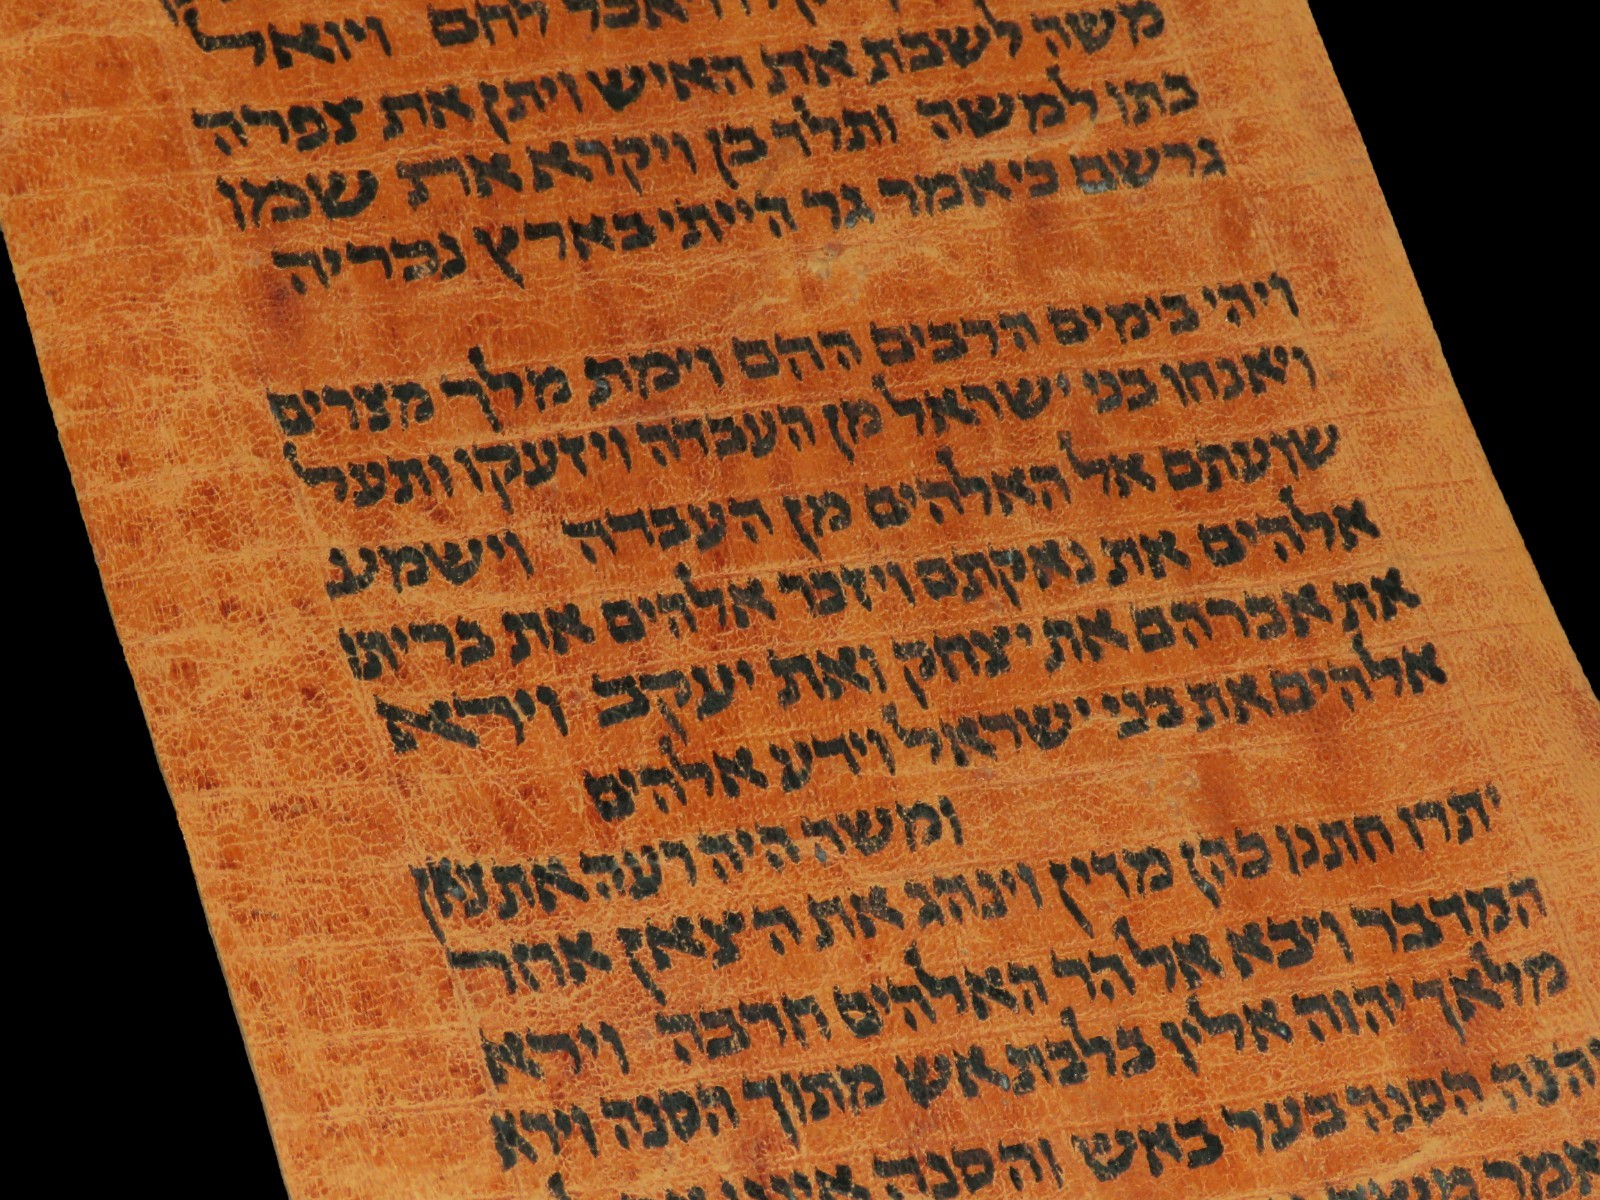 ויאכל לחם ויואל
משה לשבת את האיש ויתן את צפרה
בתו למשה ותלד בן ויקרא את שמו
גרשם כי אמר גר הייתי בארץ נכריה
ויהי בימים הרבים ההם וימת מלך מצרים
ויאנחו בני ישראל מן העבדה ויזעקו ותעל
שועתם אל האלהים מן העבדה וישמע
אלהים את נאקתם ויזכר אלהים את בריתו
את אברהם את יצחק ואת יעקב וירא
אלהים את בני ישראל וידע אלהים
ומשה היה רעה את צאן
יתרו חתנו כהן מדין וינהג את הצאן אחר
המדבר ויבא אל הר האלהים חרבה וירא
מלאך יהוה אליו בלבת אש מתוך הסנה וירא
והנה הסנה בער באש והסנה